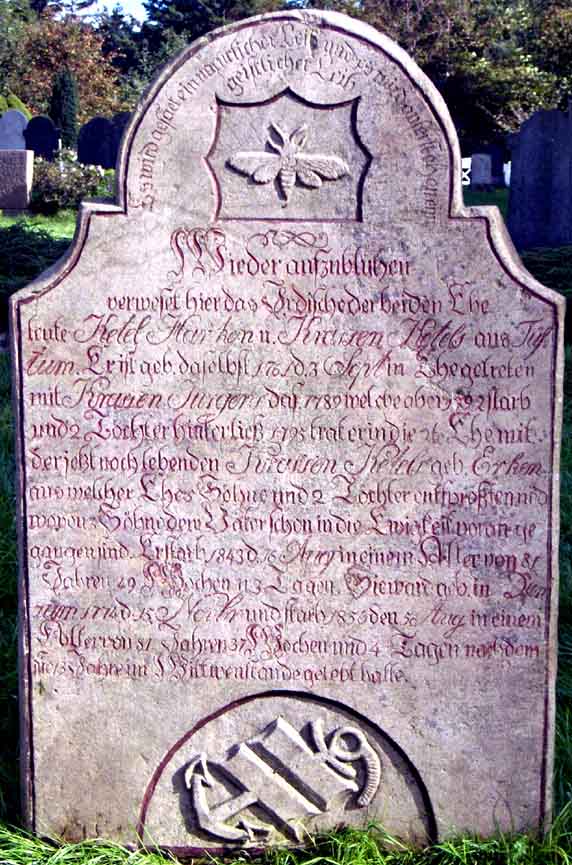 Es wird gesäet ein natürlicher Leib und es wird auferstehen
geistlicher Leib
Wieder aufzublühen
verweset hier das Irdische der beiden Ehe
leute Ketel Harken u. Krassen Ketels aus
tum. Er ist geb. daselbst 1761 d. 3 Sept in Ehe getreten
mit Jurgens das. 1789 welche aber 1792 starb
und 2 Töchter hinterließ 1795 trat er in die 2te Ehe mit
der jetzt noch lebenden Krassen Ketels geb. Erken
aus welcher Ehe 3 Söhne und 2 Töchter entsproßten und
wovon 3 Söhne dem Vater schon in die Ewigkeit vorange
gangen sind. Er starb 1843 d. 16 Aug in einem Alter von 81
Jahren 49 Wochen u 3 Tagen. Sie ward geb. in
d. 15 Novbr und starb 1856 den 30 Aug. in einem
Alter von 81 Jahren 37 Wochen und 4 Tagen nach dem
sie 13 Jahre im Wittwenstande gelebt hatte.